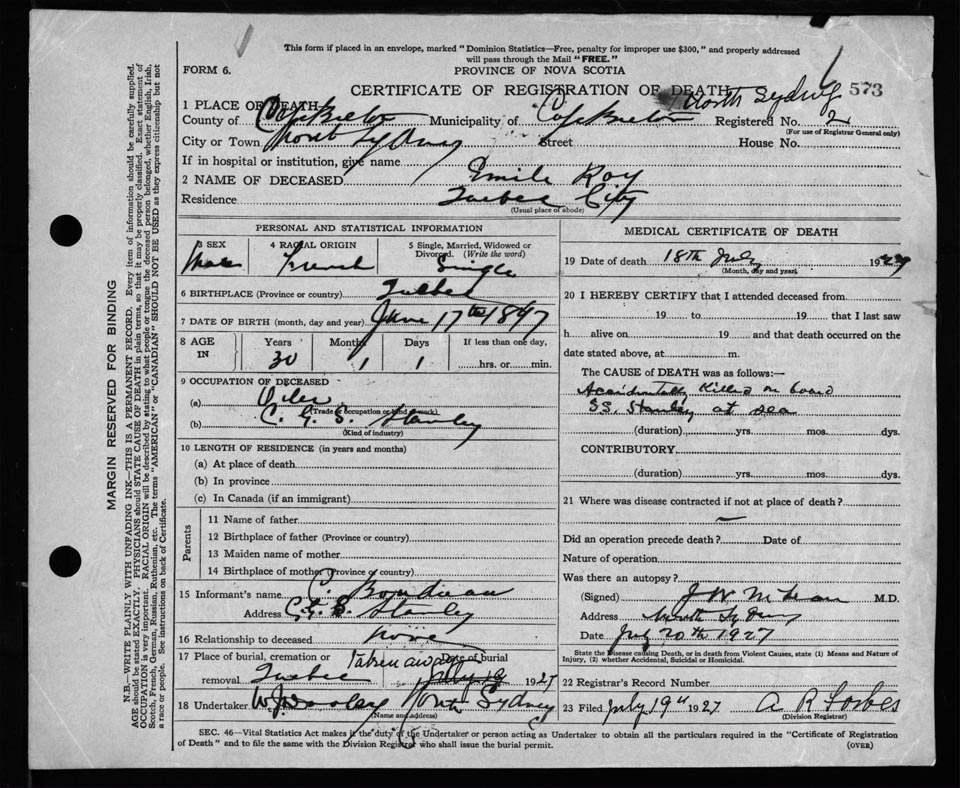 This form if placed in an envelope, marked "Dominion Statistics—Free, penalty for improper use $300," and properly addressed
will pass through the Mail "FREE."
FORM 6.
PROVINCE OF NOVA SCOTIA
CERTIFICATE OF REGISTRATION OF DEATH North Sydney 573
1 PLACE OF DEATH
County of Cape Breton Municipality of Cape Breton Registered No. 2
(For use of Registrar General only)
City or Town North Sydney Street House No.
If in hospital or institution, give name
2 NAME OF DECEASED Emile Roy
Residence Quebec City
(Usual place of abode)
PERSONAL AND STATISTICAL INFORMATION
3 SEX Male 4 RACIAL ORIGIN French 5 Single, Married, Widowed or Divorced. (Write the word) Single
6 BIRTHPLACE (Province or country) Quebec
7 DATE OF BIRTH (month, day and year) June 17th 1897
8 AGE IN Years Months Days If less than one day,
30 1 1 hrs. or min.
9 OCCUPATION OF DECEASED
(a) Oiler
(Trade, occupation or kind of work)
(b) C. G. S. Stanley
(Kind of industry)
10 LENGTH OF RESIDENCE (in years and months)
(a) At place of death
(b) In province
(c) In Canada (if an immigrant)
Parents
11 Name of father
12 Birthplace of father (Province or country)
13 Maiden name of mother
14 Birthplace of mother (Province or country)
15 Informant's name C.
Address C. G. S. Stanley
16 Relationship to deceased none
17 Place of burial, cremation or removal Quebec Taken away Date of burial July 19 1927
18 Undertaker W J Dooley North Sydney
(Name and address)
MEDICAL CERTIFICATE OF DEATH
19 Date of death 18th July 1927
(Month, day and year)
20 I HEREBY CERTIFY that I attended deceased from
19 to 19 that I last saw
h alive on 19 and that death occurred on the
date stated above, at m.
The CAUSE of DEATH was as follows:—
Accidentally Killed on board
SS. Stanley at sea
(duration) yrs. mos. dys.
CONTRIBUTORY
(duration) yrs. mos. dys.
21 Where was disease contracted if not at place of death?
Did an operation precede death? Date of
Nature of operation
Was there an autopsy?
(Signed) J W McLean M.D.
Address North Sydney
Date July 20th 1927
State the Disease causing Death, or in death from Violent Causes, state (1) Means and Nature of
Injury, (2) whether Accidental, Suicidal or Homicidal.
22 Registrar's Record Number
23 Filed July 19th 1927 A R Forbes
(Division Registrar)
SEC. 46—Vital Statistics Act makes it the duty of the Undertaker or person acting as Undertaker to obtain all the particulars required in the "Certificate of Registration
of Death" and to file the same with the Division Registrar who shall issue the burial permit. (OVER)
MARGIN RESERVED FOR BINDING
N.B.—WRITE PLAINLY WITH UNFADING INK—THIS IS A PERMANENT RECORD. Every item of information should be carefully supplied.
AGE should be stated EXACTLY. PHYSICIANS should STATE CAUSE OF DEATH in plain terms, so that it may be properly classified. Exact statement of
OCCUPATION is very important. RACIAL ORIGIN will be described by stating to what people or tongue the deceased person belonged, whether English, Irish,
Scotch, French, German, Russian, Ruthenian, etc. The terms "AMERICAN" or "CANADIAN" SHOULD NOT BE USED as they express citizenship but not
a race or people. See instructions on back of Certificate.